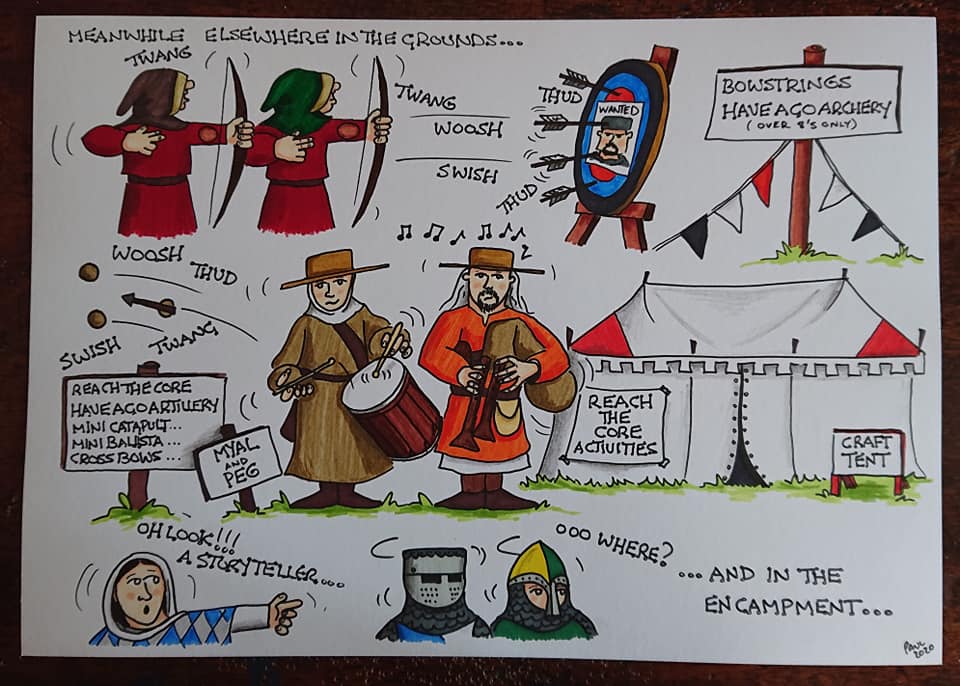 MEANWHILE ELSEWHERE IN THE GROUNDS...
TWANG
TWANG
WOOSH
SWISH
THUD
THUD
WANTED
BOWSTRINGS
HAVE A GO ARCHERY
(OVER 8'S ONLY)
WOOSH
THUD
SWISH
TWANG
REACH THE CORE
HAVE A GO ARTILLERY
MINI CATAPULT...
MINI BALISTA...
CROSS BOWS...
MYAL
AND
PEG
REACH
THE
CORE
ACTIVITIES
CRAFT
TENT
OH LOOK!!!
A STORYTELLER....
OOO WHERE?
...AND IN THE
ENCAMPMENT...
PAUL
2020